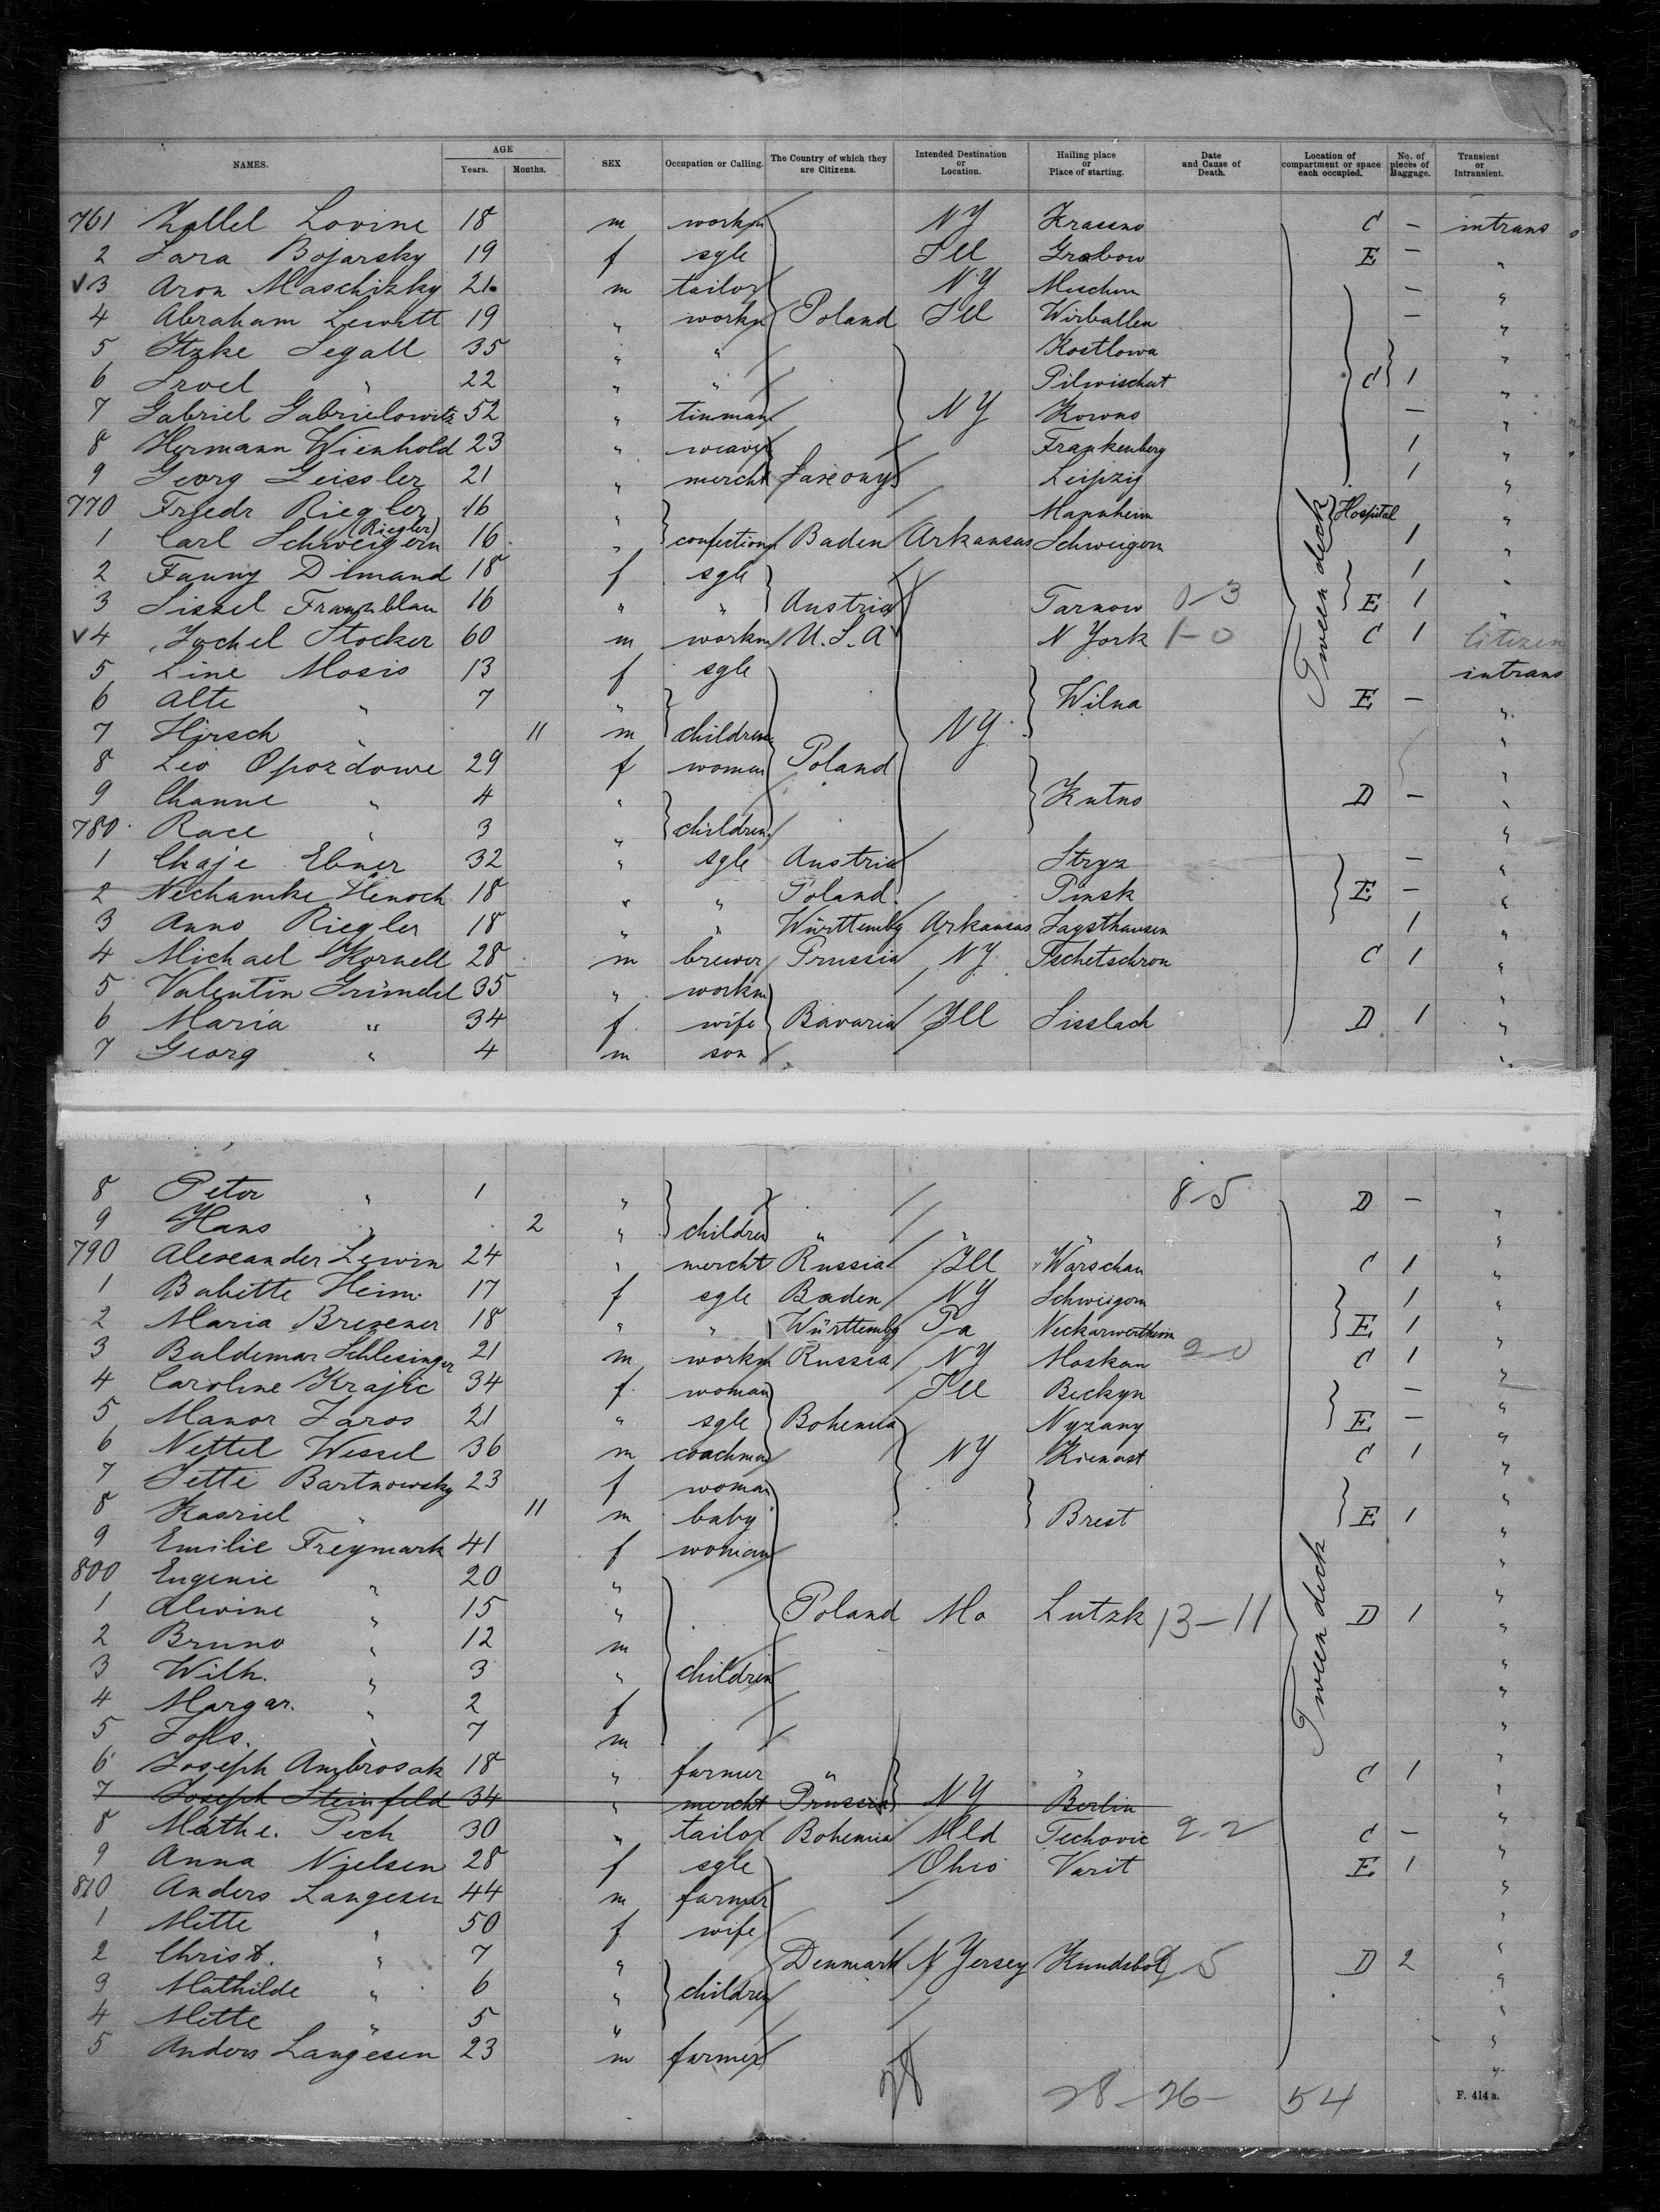 NAMES. AGE Years. Months. SEX Occupation or Calling. The Country of which they are Citizens. Intended Destination or Location. Hailing place or Place of starting. Date and Cause of Death. Location of compartment or space each occupied. No. of pieces of Baggage. Transient or Intransient.
761 Kallel Lovine 18 m workm NY Krassno C – intrans
2 Sara Bojarsky 19 f sgle Ill Grabow E – "
√3 Aron Maschizky 21 m tailor NY Meschun – "
4 Abraham Lewitt 19 " workm Poland Ill Wirballen – "
5 Itzke Segall 35 " " Kostlowa "
6 Sroel " 22 " " Pilwischat C 1 "
7 Gabriel Gabrielowitz 52 " tinman NY Kowno – "
8 Hermann Wienhold 23 " weaver Frankenberg 1 "
9 Georg Geissler 21 " mercht Saxony Leipzig 1 "
770 Friedr Riegler 16 " Mannheim Hospital "
1 Carl Schweigern (Riegler) 16 " confection Baden Arkansas Schweigern 1 "
2 Fanny Dimand 18 f sgle 1 "
3 Sissel 16 " " Austria Tarnow 0-3 E 1 "
√4 Jochel Stocker 60 m workm U.S.A N York 1-0 C 1 Citizen
5 Line Mosis 13 f sgle intrans
6 Alte " 7 " Wilna E – "
7 Hirsch " 11 m children NY "
8 Leo Opozdowe 29 f woman Poland "
9 Channe " 4 " Kutno D – "
780 Race " 3 " children "
1 Chaje Ebner 32 " sgle Austria Stryz – "
2 Nechamke Henoch 18 " " Poland Pinsk E – "
3 Anna Riegler 18 " " Württembg Arkansas Jagsthausen 1 "
4 Michael Kornell 28 m brewer Prussia NY Tschetschron C 1 "
5 Valentin Gründel 35 " workm "
6 Maria " 34 f wife Bavaria Ill Sisslach D 1 "
7 Georg " 4 m son "
8 Peter " 1 " 8-5 D – "
9 Hans " 2 " children " " " "
790 Alexeander Lewin 24 " mercht Russia Ill Warschau C 1 "
1 Babette Heim 17 f sgle Baden NY Schweigern 1 "
2 Maria Brexener 18 " " Württembg Pa Neckarwertheim E 1 "
3 Baldemar Schlesinger 21 m workm Russia NY Moskau 2-0 C 1 "
4 Caroline Krajic 34 f woman Ill Beckyn – "
5 Manor Jaros 21 " sgle Bohemia Nyrany E – "
6 Nettel Wessel 36 m coachman NY Kienast C 1 "
7 Jette Bartnowsky 23 f woman "
8 Kasriel " 11 m baby Brest E 1 "
9 Emilie Freymark 41 f woman "
800 Eugenie " 20 " "
1 Alwine " 15 " Poland Mo Lutzk 13-11 D 1 "
2 Bruno " 12 m "
3 Wilh. " 3 " children "
4 Margar. " 2 f "
5 Johs. " 7 m "
6 Joseph Ambrosak 18 " farmer " " C 1 "
7 Joseph Steinfeld 34 " mercht Prussia NY Berlin "
8 Mathe. Pech 30 " tailor Bohemia Mld Techovic 2-2 C – "
9 Anna Nielsen 28 f sgle Ohio Varit E 1 "
810 Anders Langesen 44 m farmer "
1 Mitte " 50 f wife "
2 Christ. " 7 " Denmark N Yersey Kundsbol 2 5 D 2 "
3 Mathilde " 6 " children "
4 Mette " 5 " "
5 Anders Langesen 23 m farmer "
Tween deck
Tween deck
28 28-26- 54 F. 414 a.